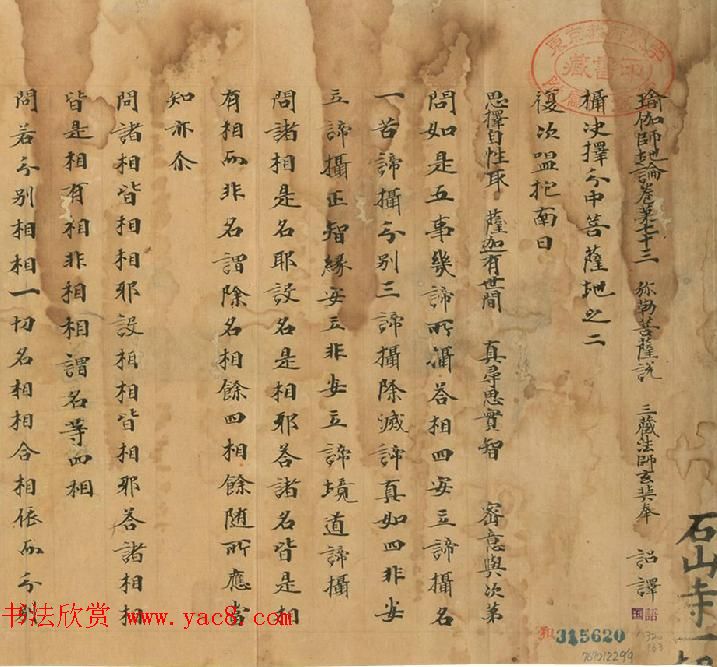 石山寺一切
瑜伽師地論卷第七十三 弥勒菩薩說 三藏法師玄奘奉 詔譯
攝決擇分中菩薩地之二
復次嗢柁南曰
思擇自性取 薩迦有世間 真尋思實智 密意與次第
問如是五事幾諦所攝答相四安立諦攝名
一苦諦攝分別三諦攝除滅諦真如四非安
立諦攝正智緣安立非安立諦境道諦攝
問諸相是名耶設名是相耶答諸名皆是相
有相而非名謂除名相餘四相餘隨所應當
知亦尒
問諸相皆相相耶設相相皆相耶答諸相相
皆是相有相非相相謂名等四相
問若分別相相一切名相相合相依而分別
书法欣赏 www.yac8.com
315620
769012299